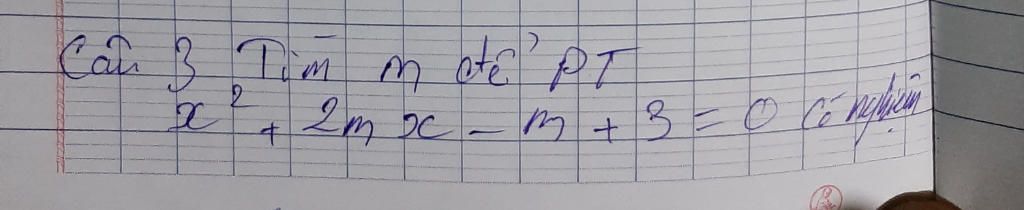 Câu 3 Tìm m để PT
x² + 2mx - m + 3 = 0 có nghiệm